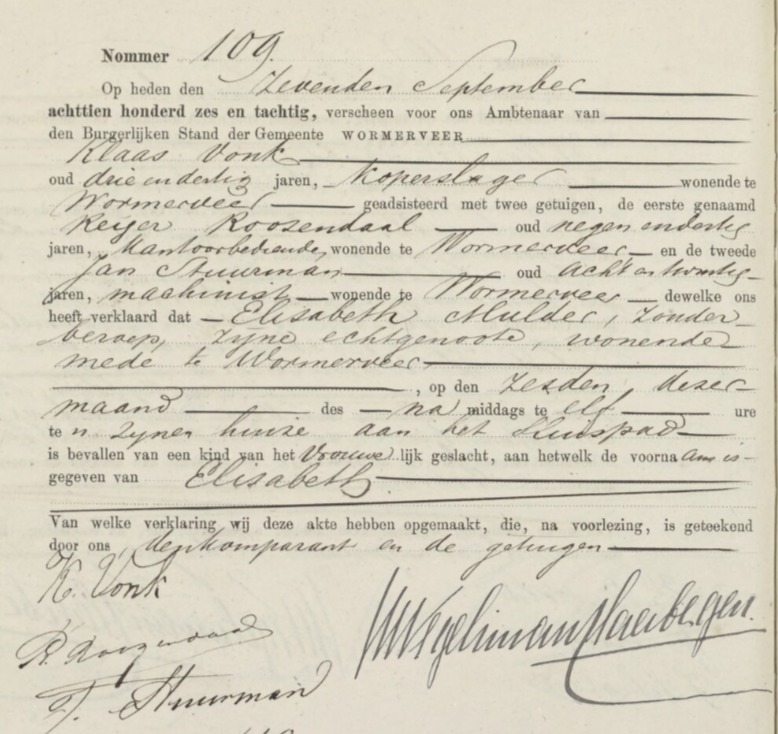 Nommer 109.
Op heden den Zevenden September
achttien honderd zes en tachtig, verscheen voor ons Ambtenaar van
den Burgerlijken Stand der Gemeente WORMERVEER
Klaas Vonk
oud drie en dertig jaren, Koperslager wonende te
Wormerveer geadsisteerd met twee getuigen, de eerste genaamd
Reijer Roosendaal oud negen en dertig
jaren, Kantoorbediende, wonende te Wormerveer en de tweede
Jan Stuurman oud acht en twintig
jaren, machinist wonende te Wormerveer dewelke ons
heeft verklaard dat Elisabeth Mulder, zonder
beroep, zyne echtgenoote, wonende
mede te Wormerveer
, op den zesden deser
maand des na middags te elf ure
te n zynen huize aan het
is bevallen van een kind van het Vrouwelijk geslacht, aan hetwelk de voornaam is
gegeven van Elisabeth
Van welke verklaring wij deze akte hebben opgemaakt, die, na voorlezing, is geteekend
door ons, den komparant en de getuigen
K. Vonk
J. Stuurman